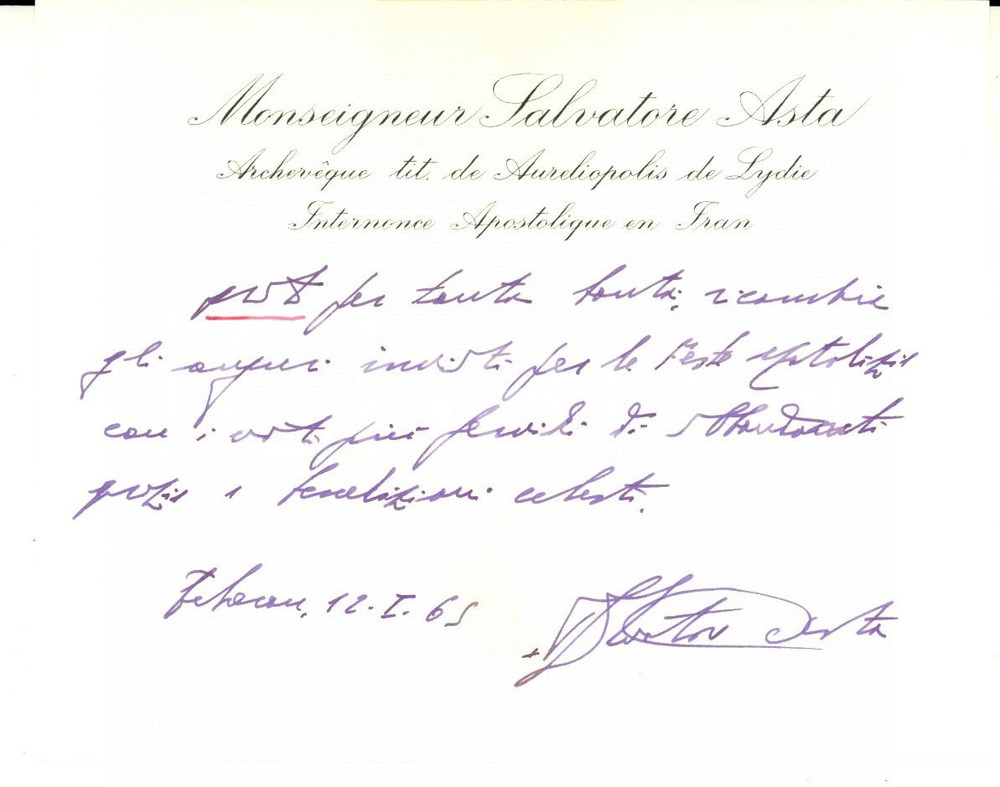 Monseigneur Salvatore Asta
Archevêque tit. de Aureliopolis de Lydie
Internonce Apostolique en Iran
grato per tanta bontà, ricambia
gli auguri inviati per le Feste natalizie
con i voti più fervidi di abbondanti
grazie e benedizioni celesti.
Teheran, 12.I.65
+ Salvatore Asta